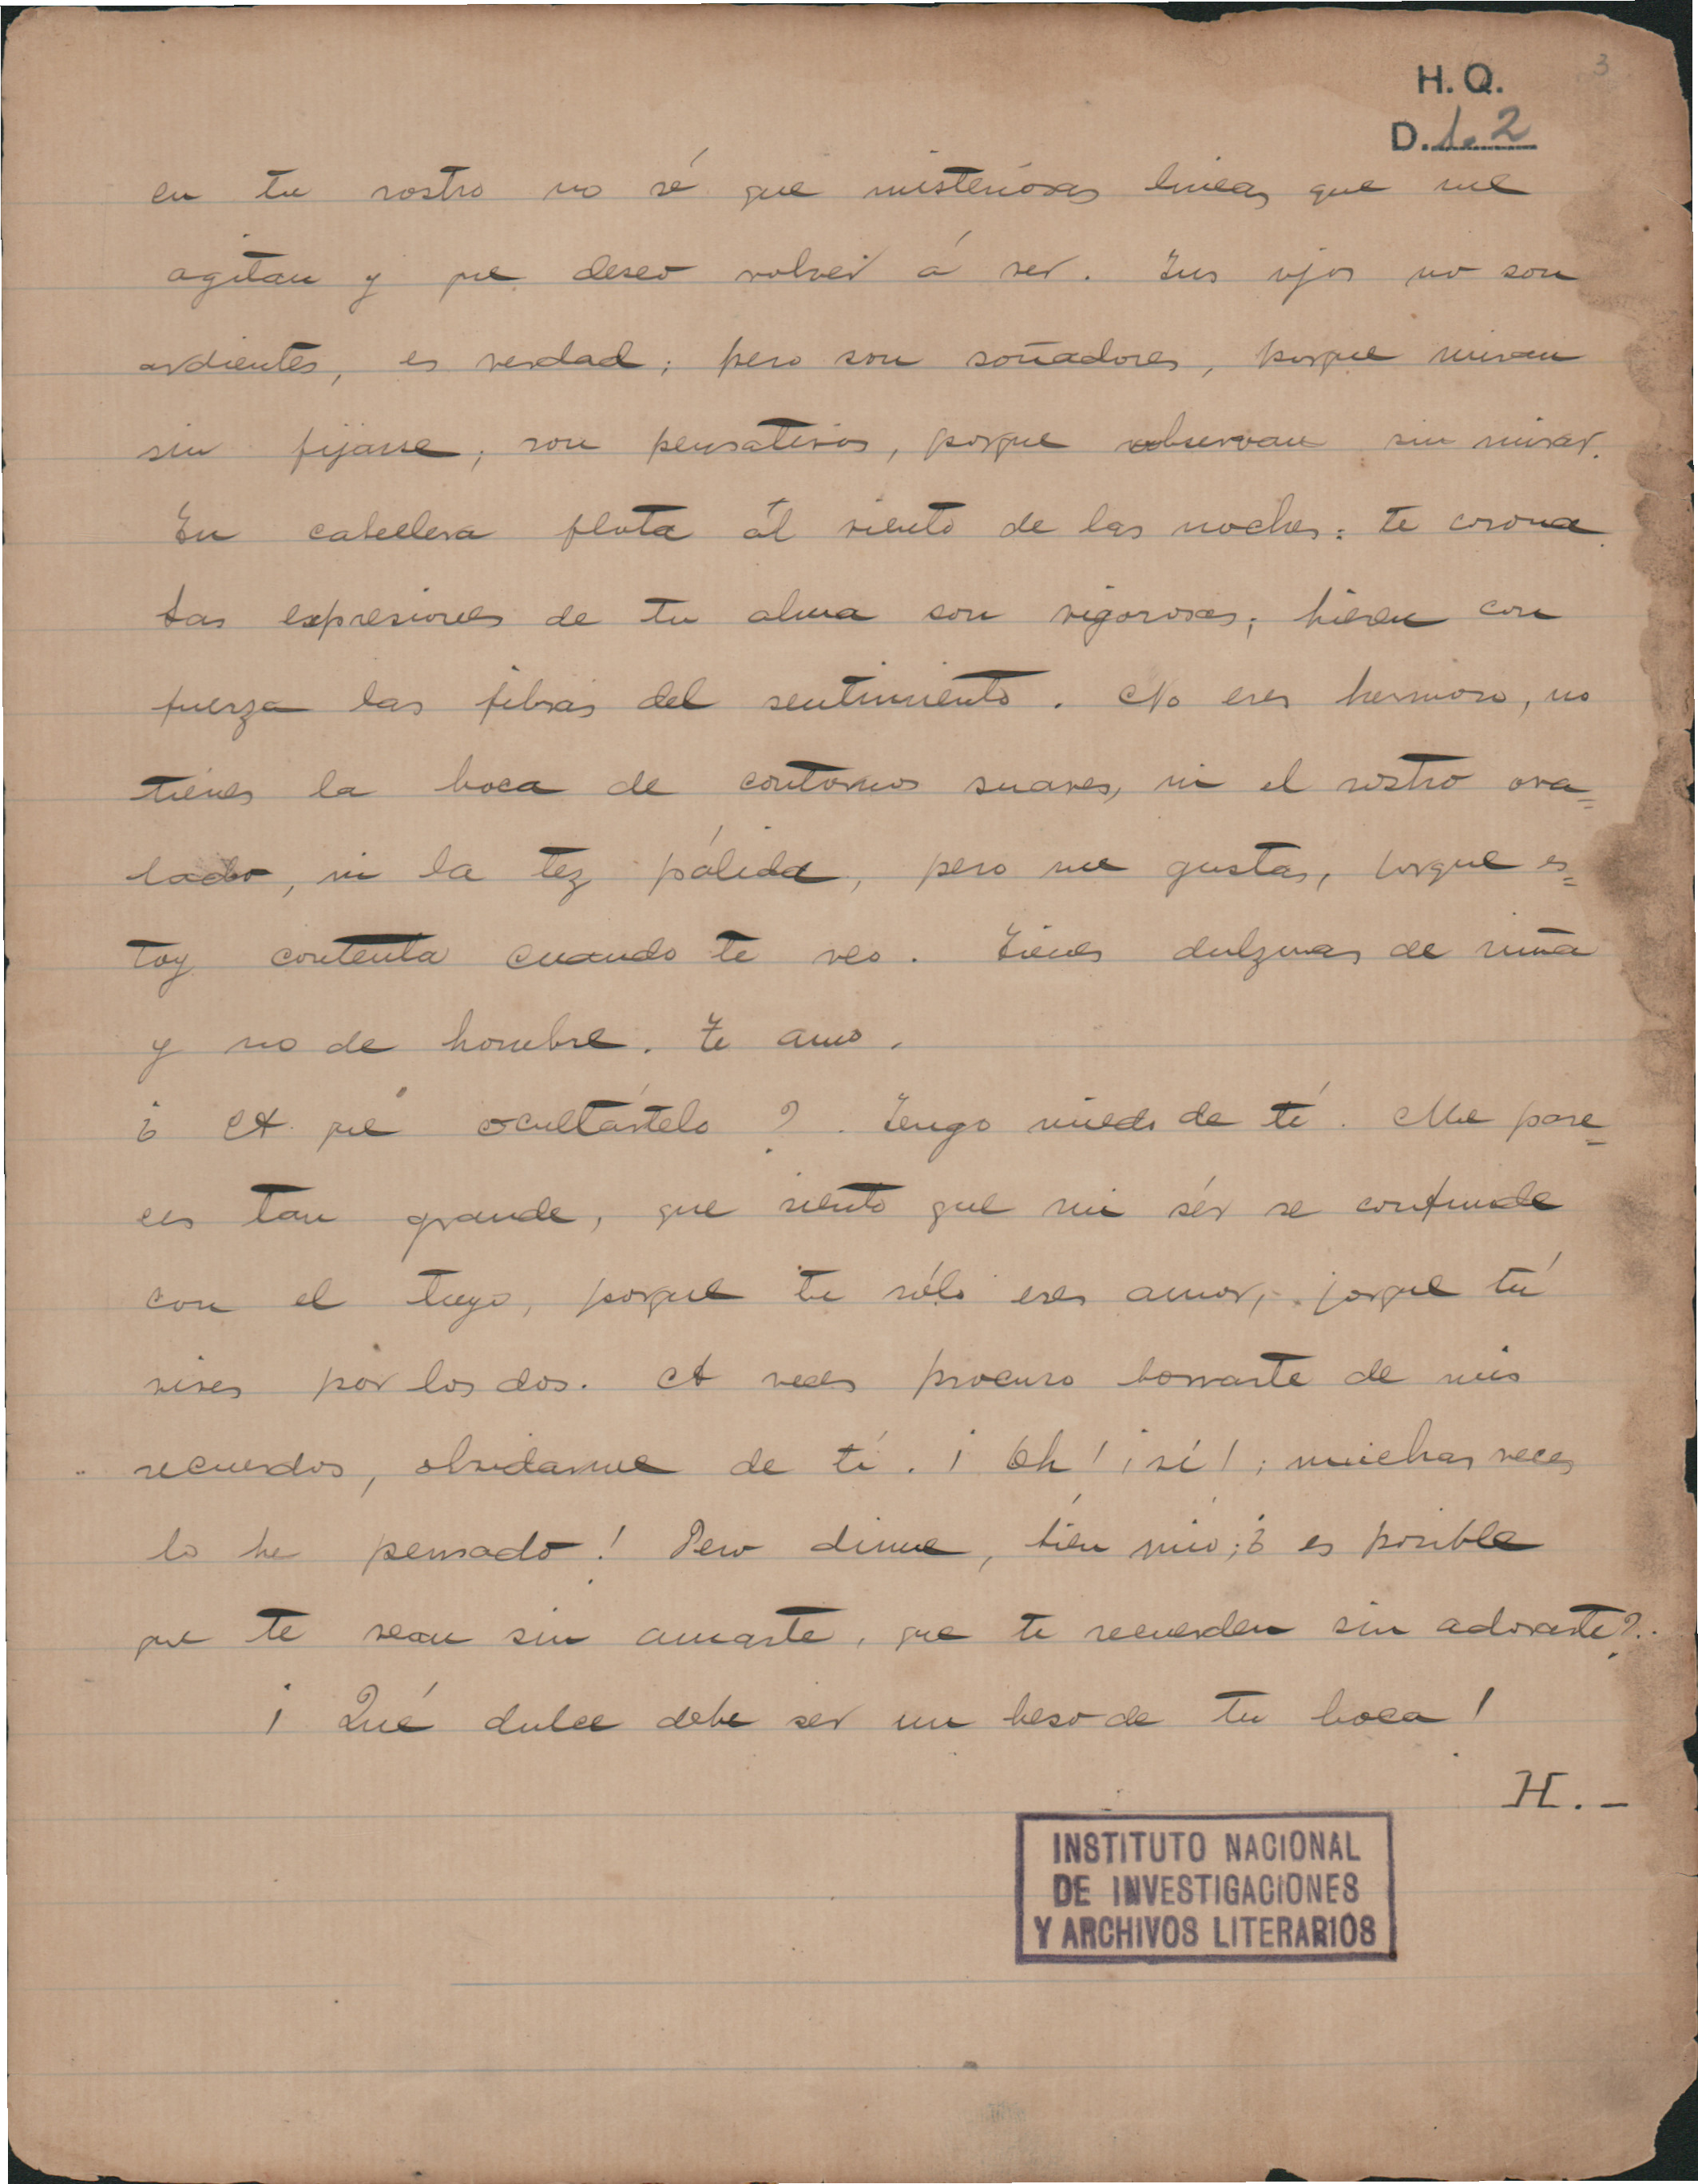 3
H. Q.
D. 1. 2
en tu rostro no sé que misteriosas lineas que me
agitan y que deseo volver á ver. Tus ojos no son
ardientes, es verdad; pero son soñadores, porque miran
sin fijarse; son pensativos, porque observan sin mirar.
Tu cabellera flota ál viento de las noches: te corona.
Las expresiones de tu alma son vigorosas; hieren con
fuerza las fibras del sentimiento. No eres hermoso, no
tienes la boca de contornos suaves, ni el rostro ova=
lado, ni la tez pálida, pero me gustas, porque es=
toy contenta cuando te veo. Tienes dulzuras de niña
y no de hombre. Te amo.
¿ A qué ocultártelo ?. Tengo miedo de tí. Me pare=
ces tan grande, que siento que mi sér se confunde
con el tuyo, porque tu sólo eres amor, porque tú
vives por los dos. A veces procuro borrarte de mis
recuerdos, olvidarme de tí. ¡ Oh ! ¡ sí ! ; muchas veces
lo he pensado ! Pero dime, bien mio; ¿ es posible
que te vean sin amarte, que te recuerden sin adorarte?..
¡ Qué dulce debe ser un beso de tu boca !
H. –
INSTITUTO NACIONAL
DE INVESTIGACIONES
Y ARCHIVOS LITERARIOS